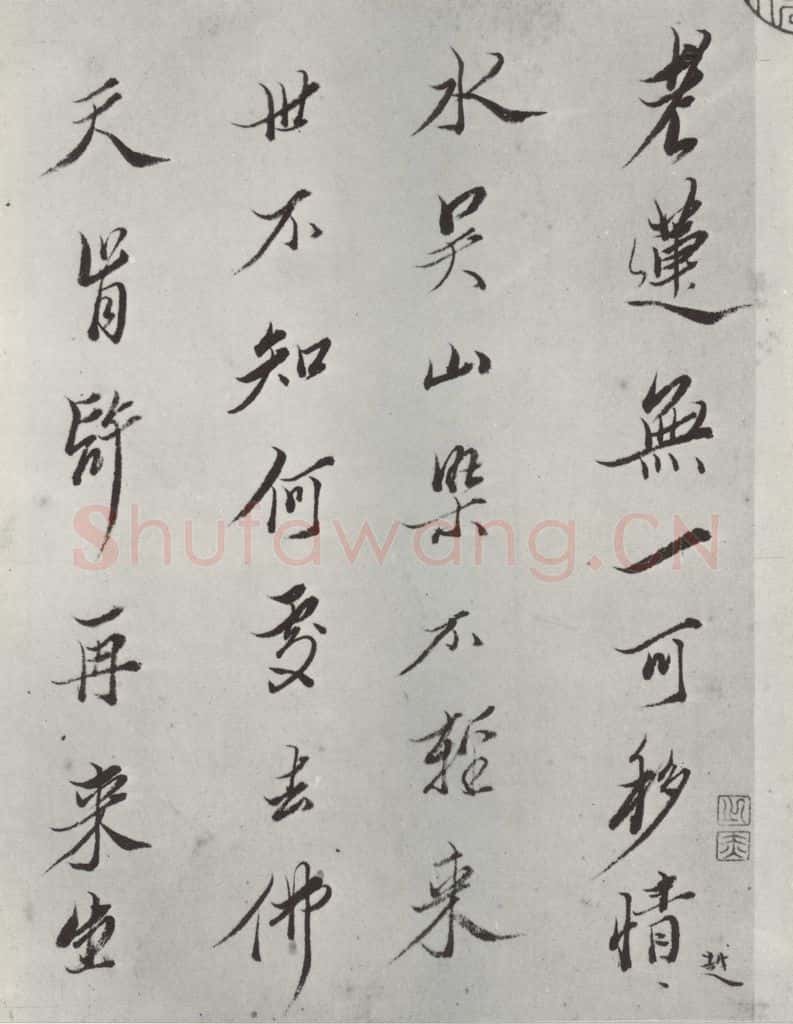 老蓮無一可移情越
水吳山染不輕来
世不知何處去佛
天肯許再来生
Shufawang.CN